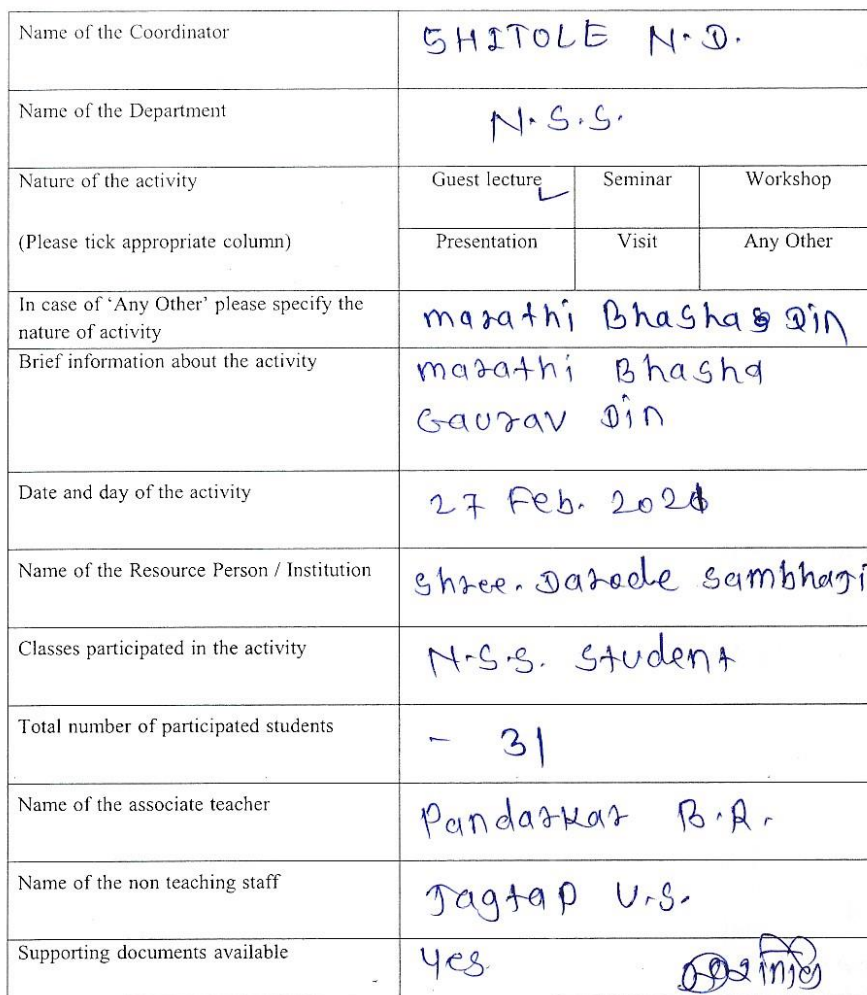 Name of the Coordinator SHITOLE N.D.
Name of the Department N.S.S.
Nature of the activity Guest lecture ✓ Seminar Workshop
(Please tick appropriate column) Presentation Visit Any Other
In case of 'Any Other' please specify the
nature of activity marathi Bhasha Din
Brief information about the activity marathi Bhasha
Gaurav Din
Date and day of the activity 27 Feb. 2021
Name of the Resource Person / Institution Shree. Darade Sambhaji
Classes participated in the activity N.S.S. Student
Total number of participated students - 31
Name of the associate teacher Pandarkar B.R.
Name of the non teaching staff Jagtap U.S.
Supporting documents available Yes